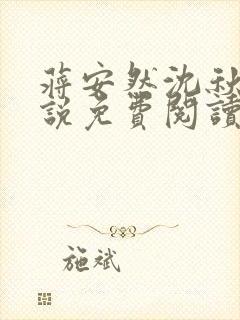 蔣安然沈秋
說免費閱讀
施斌